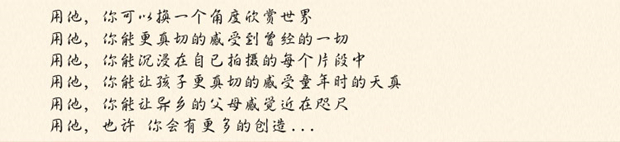 用他，你可以换一个角度欣赏世界
用他，你能更真切的感受到曾经的一切
用他，你能沉浸在自己拍摄的每个片段中
用他，你能让孩子更真切的感受童年时的天真
用他，你能让异乡的父母感觉近在咫尺
用他，也许 你会有更多的创造...